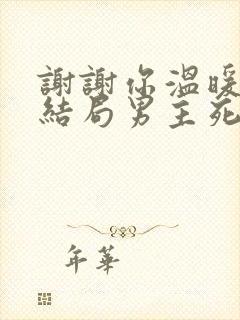 謝謝你溫暖
結局男主死
年華